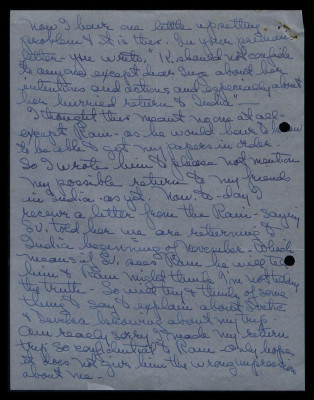 now I have one little upsetting
problem & it is this. In your previous
letter - you write, "K. should not confide
to anyone except dear Inez about her
intentions and actions and especially about
her hurried return to India"
I thought this meant no one at all -
except Ram - as he would have to know
to be able to get my papers in order.
So I wrote him to please not mention
my possible return to my friends
in India - as yet. Now to-day I
receive a letter from the Ram - saying
S.V. told her we are returning to
India beginning of November - which
means if S.V. sees Ram he will tell
him & Ram might think I'm not telling
the truth - So will try & think of some
thing to say & explain about
& Devika behaviour about my trip
Am really sorry I made my return
trip so confidential to Ram - only hope
it does not give him the wrong impression
about me.